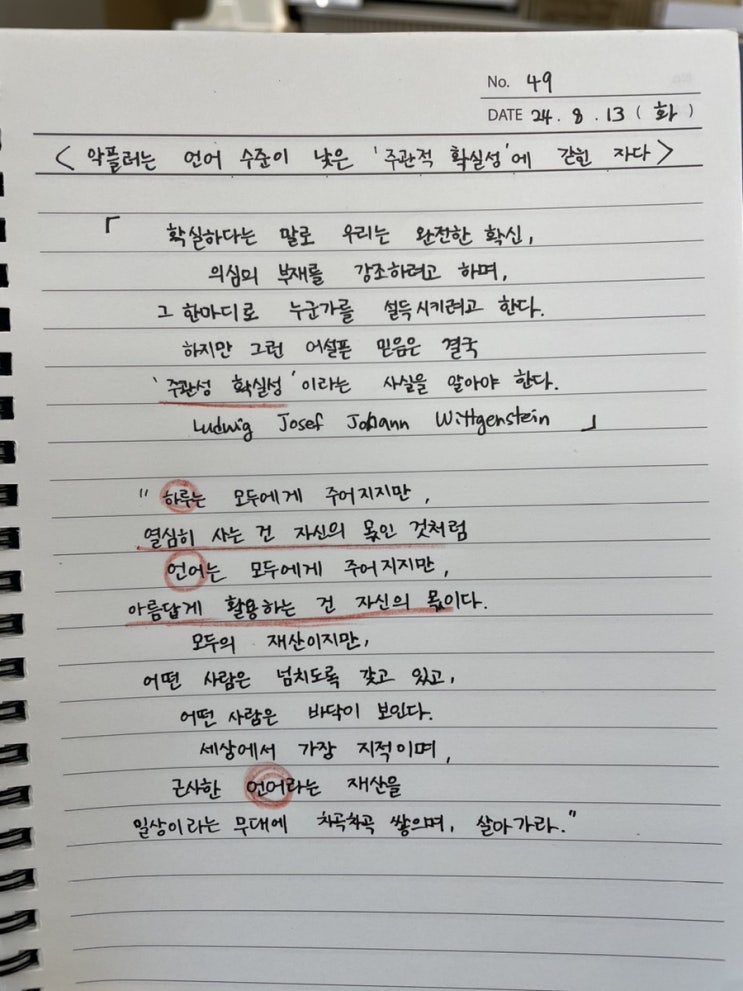 No. 49
DATE 24. 8. 13 ( 화 )
< 악플러는 언어 수준이 낮은 '주관적 확실성'에 갇힌 자다 >
「 확실하다는 말로 우리는 완전한 확신,
의심의 부재를 강조하려고 하며,
그 한마디로 누군가를 설득시키려고 한다.
하지만 그런 어설픈 믿음은 결국
'주관성 확실성'이라는 사실을 알아야 한다.
Ludwig Josef Johann Wittgenstein 」
" 하루는 모두에게 주어지지만,
열심히 사는 건 자신의 몫인 것처럼
언어는 모두에게 주어지지만,
아름답게 활용하는 건 자신의 몫이다.
모두의 재산이지만,
어떤 사람은 넘치도록 갖고 있고,
어떤 사람은 바닥이 보인다.
세상에서 가장 지적이며,
근사한 언어라는 재산을
일상이라는 무대에 차곡차곡 쌓으며, 살아가라."